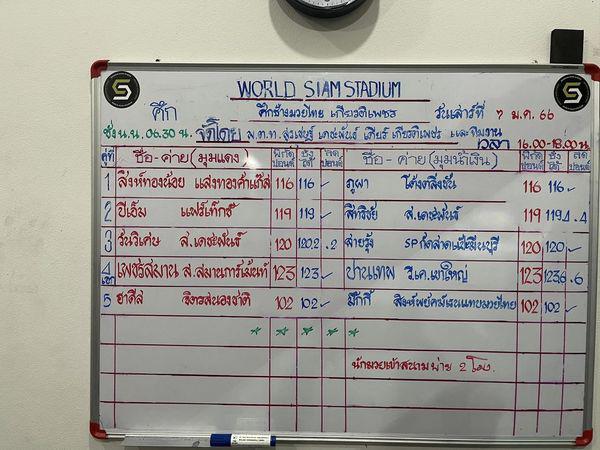 WORLD SIAM STADIUM
ศึก ศึกช้างมวยไทย เกียรติเพชร วันเสาร์ที่ 7 ม.ค. 66
ชั่ง น.น. 06.30 น. จัดโดย พ.ต.ท. สุรเศษฐ์ เดชะพันธ์ เสี่ยร์ เกียรติเพชร และทีมงาน
เวลา 16.00-18.00 น.
คู่ที่ ชื่อ-ค่าย (มุมแดง) พิกัด ปอนด์ ชั่งได้ ลด ปอนด์ ชื่อ-ค่าย (มุมน้ำเงิน) พิกัด ปอนด์ ชั่งได้ ลด ปอนด์
1 สิงห์ทองน้อย แสงทองค้าแก๊ส 116 116 ภูผา โค้งตลิ่งชัน 116 116
2 ปีเอ็ม แฟร์เท็กซ์ 119 119 สิทธิชัย ส.เดชะพันธ์ 119 119.4 .4
3 วันวิเศษ ส.เดชะพันธ์ 120 120.2 .2 สายรุ้ง SP 120 120
4 เอก เพชรสมาน ส.สมานการ์เม้นท์ 123 123 ปานเทพ วี.เค.เขาใหญ่ 123 123.6 .6
5 ฮาดีส จิตรสนองชาติ 102 102 มิกกี้ 102 102
นักมวยเข้าสนาม บ่าย 2 โมง.